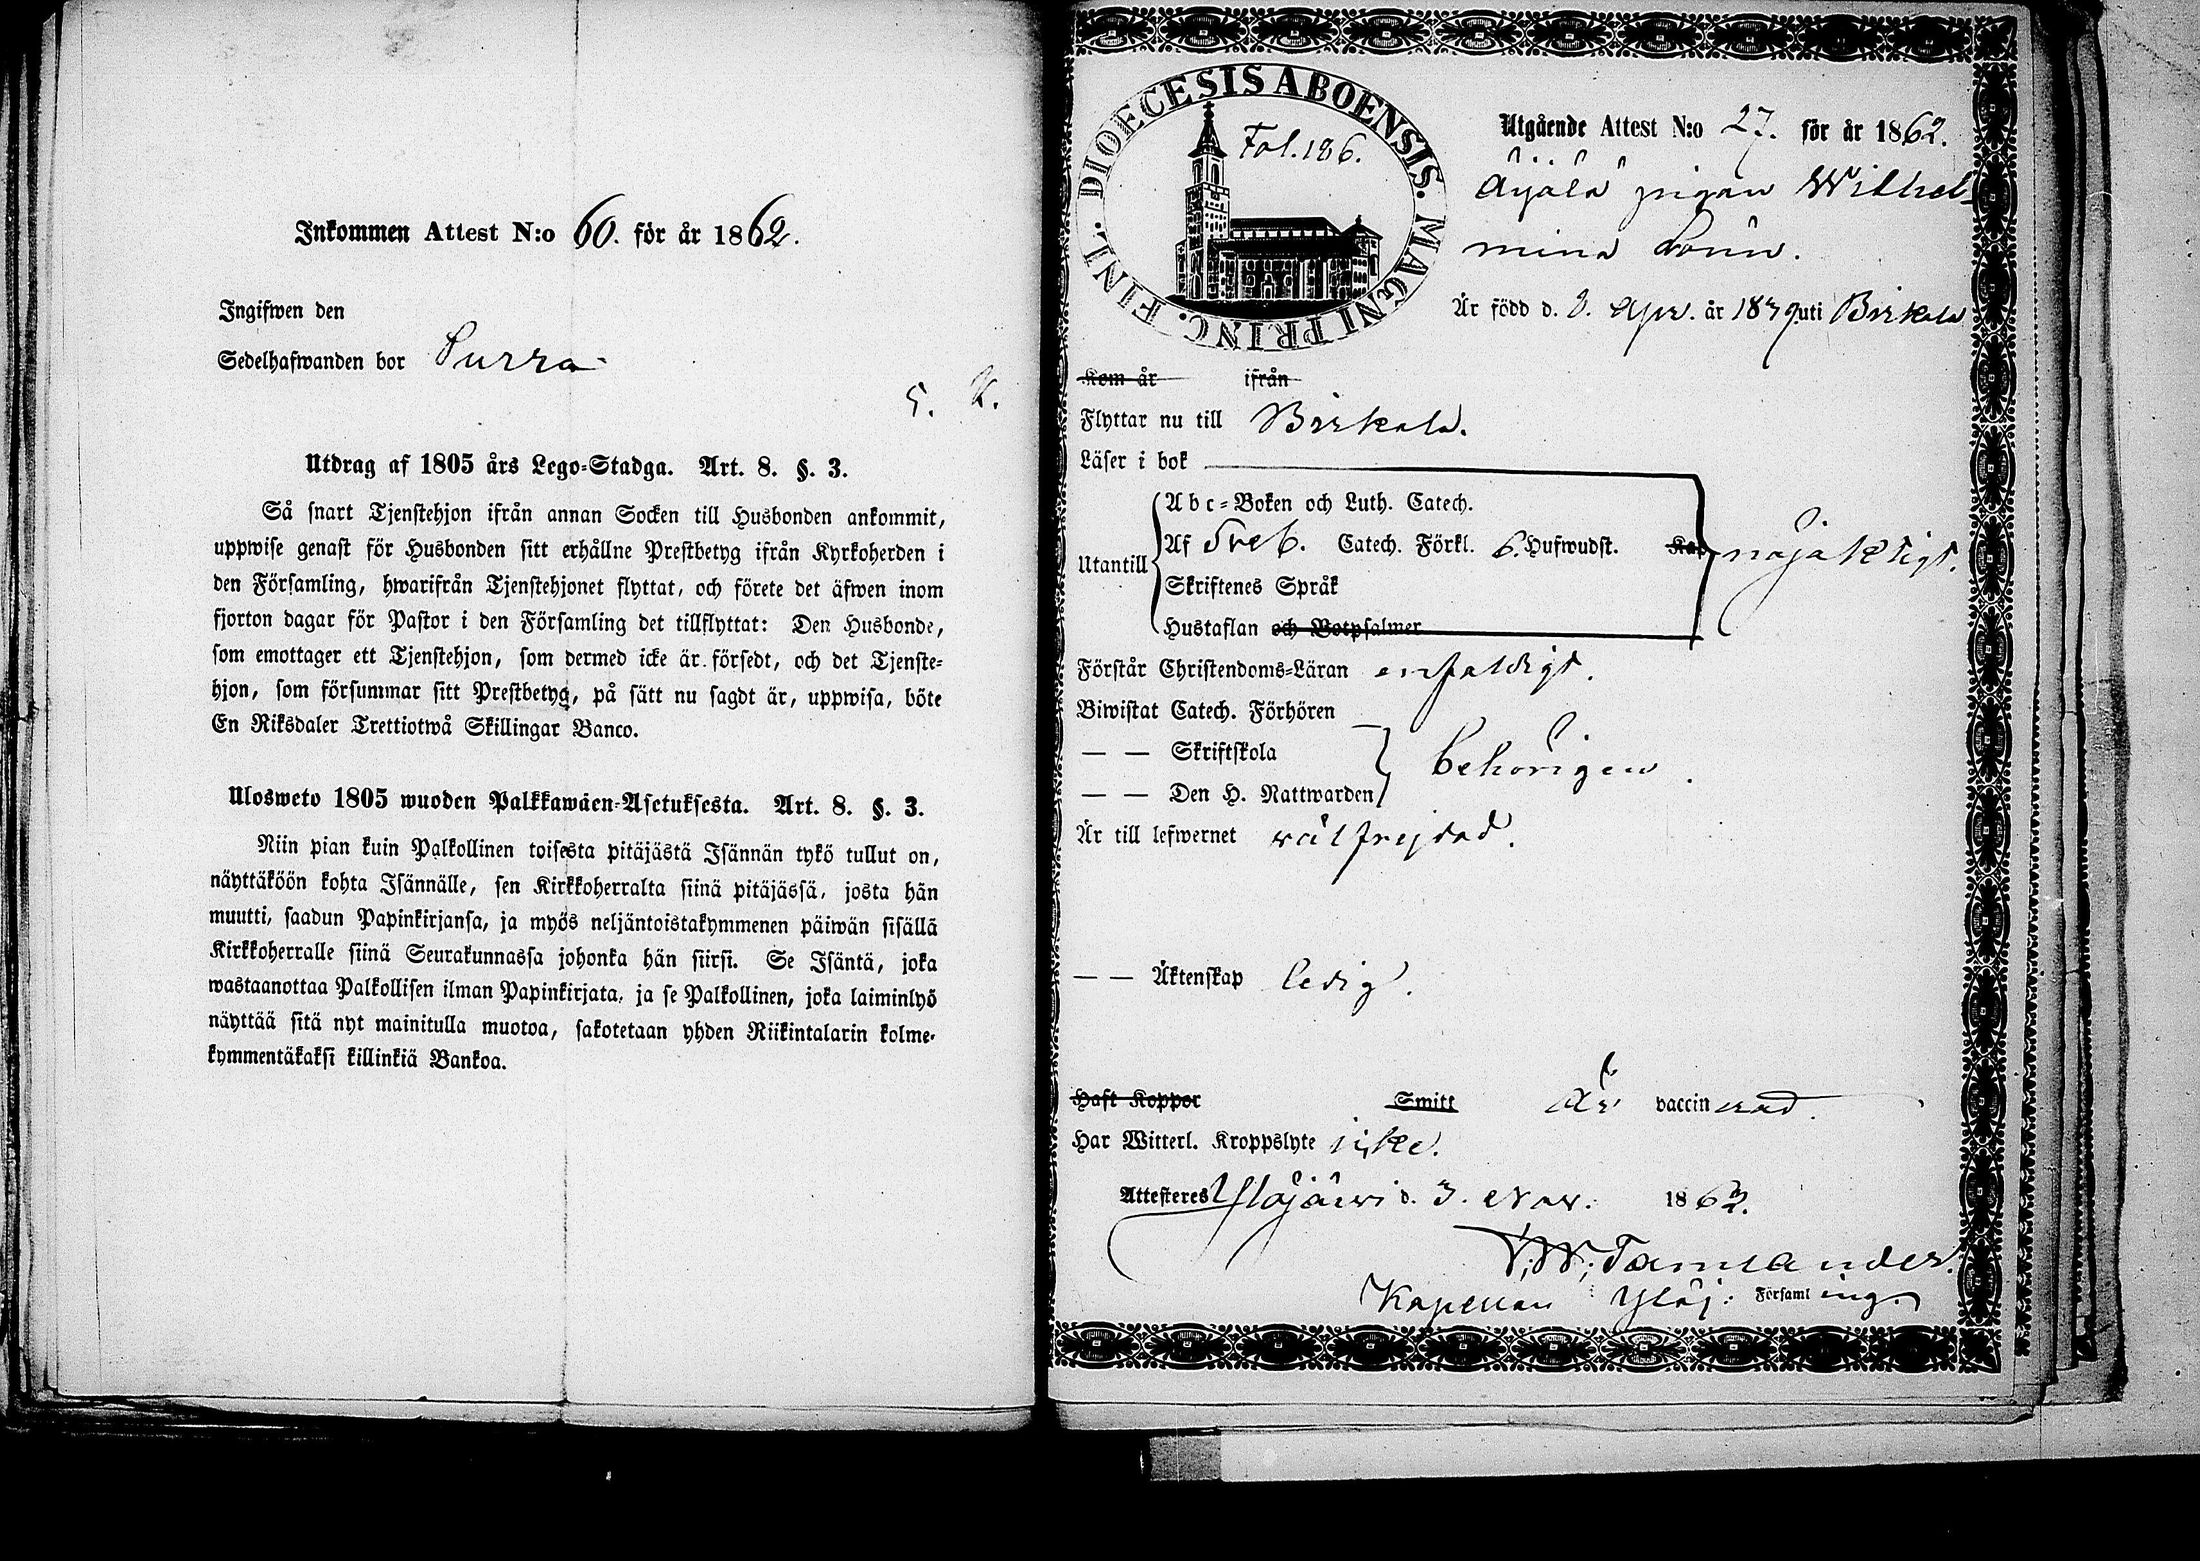 Inkommen Attest N:o 60. för år 1862.
Ingifwen den
Sedelhafwanden bor Surra
5. K.
Utdrag af 1805 års Lego-Stadga. Art. 8. §. 3.
Så snart Tjenstehjon ifrån annan Socken till Husbonden ankommit,
uppwise genast för Husbonden sitt erhållne Prestbetyg ifrån Kyrkoherden i
den Församling, hwarifrån Tjenstehjonet flyttat, och förete det äfwen inom
fjorton dagar för Pastor i den Församling det tillflyttat: Den Husbonde,
som emottager ett Tjenstehjon, som dermed icke är försedt, och det Tjenste-
hjon, som försummar sitt Prestbetyg, på sätt nu sagdt är, uppwisa, böte
En Riksdaler Trettiotwå Skillingar Banco.
Ulosweto 1805 wuoden Palkkawäen-Asetuksesta. Art. 8. §. 3.
Niin pian kuin Palkollinen toisesta pitäjästä Isännän tykö tullut on,
näyttäköön kohta Isännälle, sen Kirkkoherralta siinä pitäjässä, josta hän
muutti, saadun Papinkirjansa, ja myös neljäntoistakymmenen päiwän sisällä
Kirkkoherralle siinä Seurakunnassa johonka hän siirsi. Se Isäntä, joka
wastaanottaa Palkollisen ilman Papinkirjata, ja se Palkollinen, joka laiminlyö
näyttää sitä nyt mainitulla muotoa, sakotetaan yhden Riikintalarin kolme-
kymmentäkaksi killinkiä Bankoa.
DIOECESIS ABOENSIS. MAGNI PRINC. FINL.
Fol. 186.
Utgående Attest N:o 27. för år 1862.
Äijälä pigan Wilhel-
mina
Är född d. 2. Apr. år 1839 uti Birkala
Kom år ifrån
Flyttar nu till Birkala.
Läser i bok
Abc-Boken och Luth. Catech.
Utantill Af Sveb. Catech. Förkl. 6. Hufwudst. Kap nöjaktigt.
Skriftenes Språk
Hustaflan och Botpsalmer
Förstår Christendoms-Läran enfaldigt.
Biwistat Catech. Förhören
— — Skriftskola behörigen.
— — Den H. Nattwarden
Är till lefwernet wälfrejdad.
— — Äktenskap ledig.
Haft Koppor Smitt Är vaccinerad.
Har Witterl. Kroppslyte icke.
Attesteres Ylöjärwi d. 3. Nov. 1862.
V. W. Tamlander.
Kapellan Ylöj: Församling.